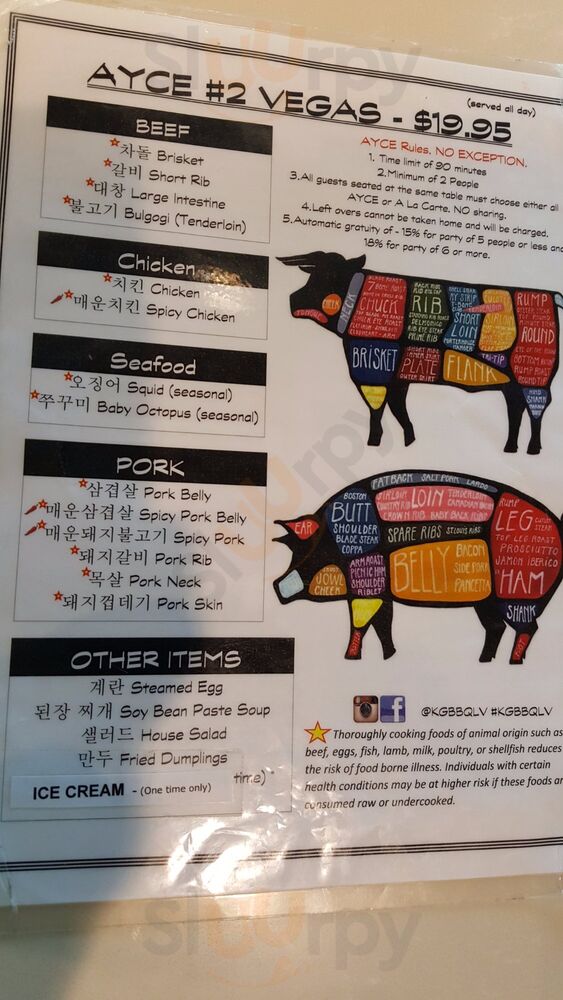 AYCE #2 VEGAS - $19.95
(served all day)
BEEF
차돌 Brisket
갈비 Short Rib
대창 Large Intestine
불고기 Bulgogi (Tenderloin)
AYCE Rules. NO EXCEPTION.
1. Time limit of 90 minutes
2.Minimum of 2 People
3.All guests seated at the same table must choose either all
AYCE or A La Carte. NO sharing.
4.Left overs cannot be taken home and will be charged.
5.Automatic gratuity of - 15% for party of 5 people or less and
18% for party of 6 or more.
Chicken
치킨 Chicken
매운치킨 Spicy Chicken
Seafood
오징어 Squid (seasonal)
쭈꾸미 Baby Octopus (seasonal)
PORK
삼겹살 Pork Belly
매운삼겹살 Spicy Pork Belly
매운돼지불고기 Spicy Pork
돼지갈비 Pork Rib
목살 Pork Neck
돼지껍데기 Pork Skin
OTHER ITEMS
계란 Steamed Egg
된장 찌개 Soy Bean Paste Soup
샐러드 House Salad
만두 Fried Dumplings
time)
ICE CREAM - (One time only)
TONGUE
CHEEK
NECK
BLADE ROAST
7 BONE ROAST
CHUCK
BRISKET
BACK RIBS
RIB
DELMONICO
RIB EYE STEAK
PRIME RIB
PLATE
SHORT
LOIN
TENDERLOIN
FLANK
TRI-TIP
RUMP
ROUND
BOTTOM ROUND
RUMP ROAST
ROUND TIP
SHANK
FATBACK SALT PORK LARDO
EAR
JOWL
CHEEK
BOSTON
BUTT
SHOULDER
BLADE STEAK
COPPA
ARM ROAST
PICNIC HAM
SHOULDER
RIBLET
SIRLOIN
LOIN
TENDERLOIN
CANADIAN BACON
CROWN RIB BABY BACK RIBS
SPARE RIBS ST.LOUIS RIBS
BELLY
BACON
SIDE PORK
PANCETTA
RUMP
LEG
CUTLET
STEAK
TOP LEG ROAST
PROSCIUTTO
JAMON IBERICO
HAM
SHANK
TROTTER
f
@KGBBQLV #KGBBQLV
Thoroughly cooking foods of animal origin such as
beef, eggs, fish, lamb, milk, poultry, or shellfish reduces
the risk of food borne illness. Individuals with certain
health conditions may be at higher risk if these foods are
consumed raw or undercooked.
Slurrpy
Slurrpy
Slurrpy